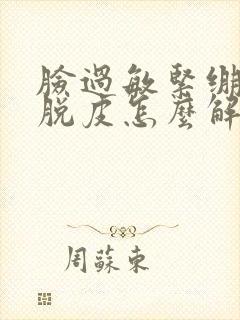 臉過敏緊繃
脫皮怎麼解
周蘇東